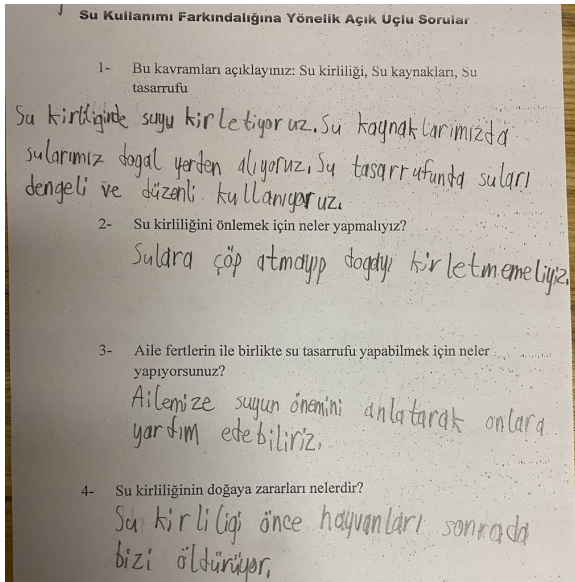 Su Kullanımı Farkındalığına Yönelik Açık Uçlu Sorular
1- Bu kavramları açıklayınız: Su kirliliği, Su kaynakları, Su
tasarrufu
Su kirliliğinde suyu kirletiyoruz. Su kaynaklarımızda
sularımız dogal yerden alıyoruz. Su tasarrufunda suları
dengeli ve düzenli kullanıyoruz.
2- Su kirliliğini önlemek için neler yapmalıyız?
Sulara çöp atmayıp dogayı kirletmemeliyiz.
3- Aile fertlerin ile birlikte su tasarrufu yapabilmek için neler
yapıyorsunuz?
Ailemize suyun önemini anlatarak onlara
yardım edebiliriz.
4- Su kirliliğinin doğaya zararları nelerdir?
Su kirliligi önce hayvanları sonrada
bizi öldürüyor.